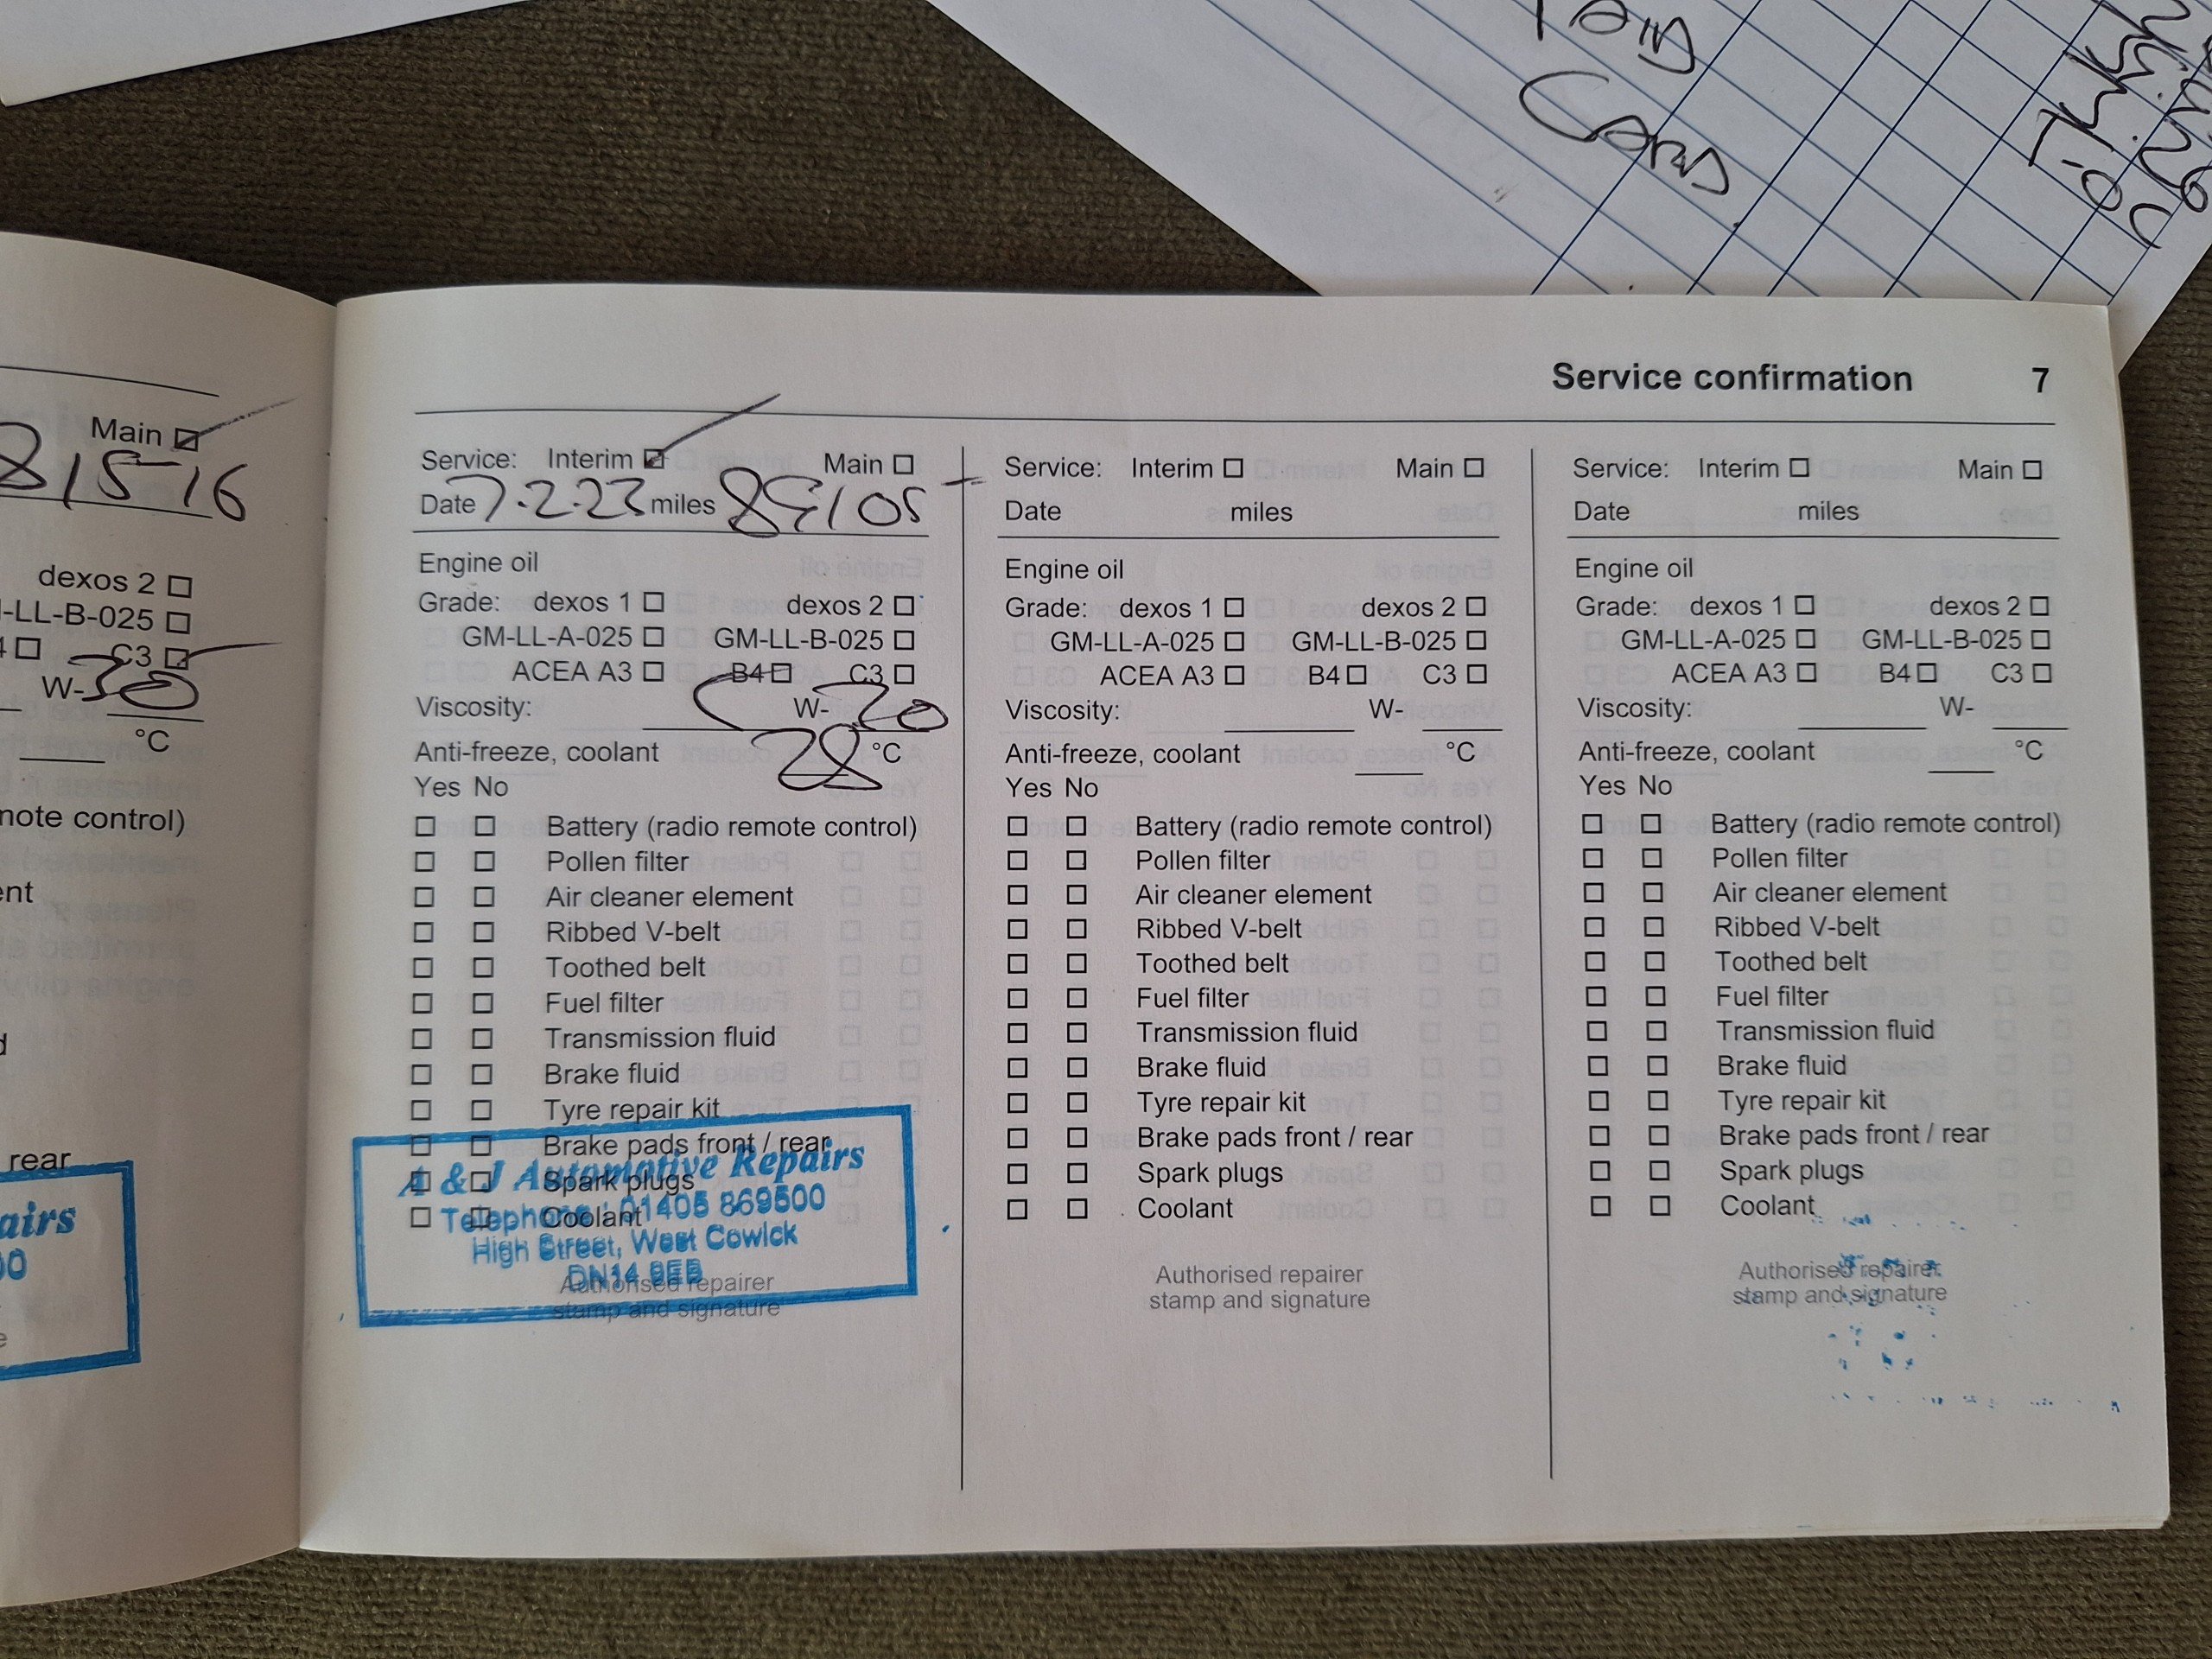 GIVE
CARD
Main
81516
dexos 2
-LL-B-025
C3
W-30
°C
note control)
ent
rear
airs
00
Service confirmation 7
Service: Interim Main
Date 7.2.23 miles 89105
Engine oil
Grade: dexos 1 dexos 2
GM-LL-A-025 GM-LL-B-025
ACEA A3 B4 C3
Viscosity: W-20
Anti-freeze, coolant 28 °C
Yes No
Battery (radio remote control)
Pollen filter
Air cleaner element
Ribbed V-belt
Toothed belt
Fuel filter
Transmission fluid
Brake fluid
Tyre repair kit
Brake pads front / rear
Spark plugs
Coolant
A & J Automotive Repairs
Telephone: 01405 869500
High Street, West Cowick
DN14 9EB
Authorised repairer
stamp and signature
Service: Interim Main
Date miles
Engine oil
Grade: dexos 1 dexos 2
GM-LL-A-025 GM-LL-B-025
ACEA A3 B4 C3
Viscosity: W-
Anti-freeze, coolant °C
Yes No
Battery (radio remote control)
Pollen filter
Air cleaner element
Ribbed V-belt
Toothed belt
Fuel filter
Transmission fluid
Brake fluid
Tyre repair kit
Brake pads front / rear
Spark plugs
Coolant
Authorised repairer
stamp and signature
Service: Interim Main
Date miles
Engine oil
Grade: dexos 1 dexos 2
GM-LL-A-025 GM-LL-B-025
ACEA A3 B4 C3
Viscosity: W-
Anti-freeze, coolant °C
Yes No
Battery (radio remote control)
Pollen filter
Air cleaner element
Ribbed V-belt
Toothed belt
Fuel filter
Transmission fluid
Brake fluid
Tyre repair kit
Brake pads front / rear
Spark plugs
Coolant
Authorised repairer
stamp and signature